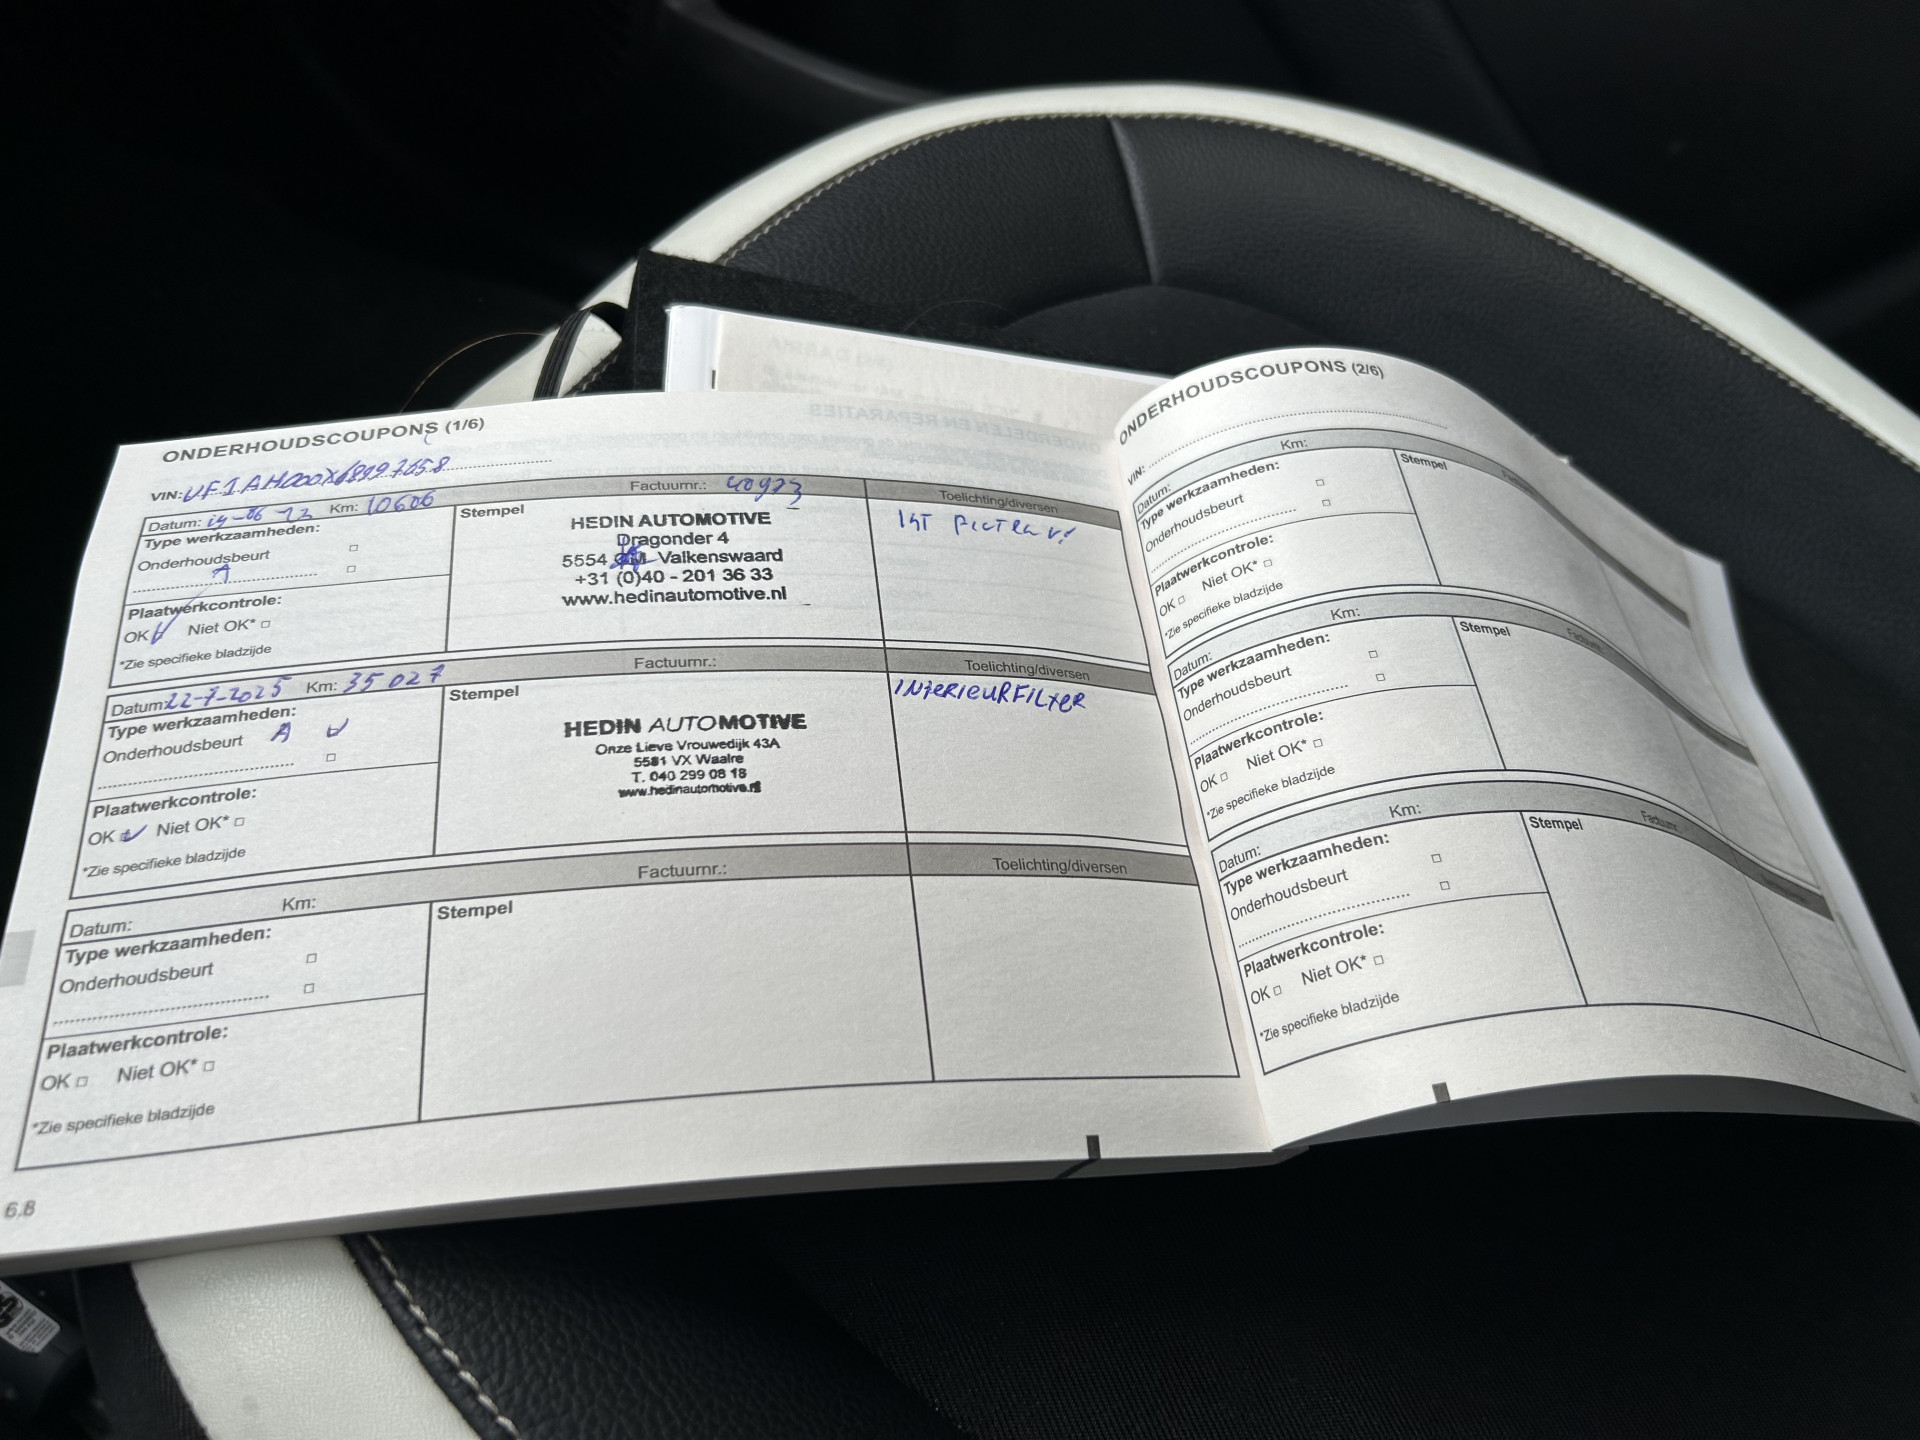 ONDERHOUDSCOUPONS (1/6)
VIN:
Datum: Km: 10606 Factuurnr.: 40923 Toelichting/diversen
Type werkzaamheden:
Onderhoudsbeurt
A
Plaatwerkcontrole:
OK Niet OK*
*Zie specifieke bladzijde
Stempel
HEDIN AUTOMOTIVE
Dragonder 4
5554 Valkenswaard
+31 (0)40 - 201 36 33
www.hedinautomotive.nl
Datum: 22-7-2025 Km: 35027 Factuurnr.: Toelichting/diversen
Type werkzaamheden:
Onderhoudsbeurt A
Plaatwerkcontrole:
OK Niet OK*
*Zie specifieke bladzijde
Stempel
HEDIN AUTOMOTIVE
Onze Lieve Vrouwedijk 43A
5581 VX Waalre
T. 040 299 08 18
www.hedinautomotive.nl
INTERIEURFILTER
Datum: Km: Factuurnr.: Toelichting/diversen
Type werkzaamheden:
Onderhoudsbeurt
Plaatwerkcontrole:
OK Niet OK*
*Zie specifieke bladzijde
Stempel
6.8
ONDERHOUDSCOUPONS (2/6)
VIN:
Datum: Km:
Type werkzaamheden:
Onderhoudsbeurt
Plaatwerkcontrole:
OK Niet OK*
*Zie specifieke bladzijde
Stempel
Datum: Km:
Type werkzaamheden:
Onderhoudsbeurt
Plaatwerkcontrole:
OK Niet OK*
*Zie specifieke bladzijde
Stempel
Datum: Km:
Type werkzaamheden:
Onderhoudsbeurt
Plaatwerkcontrole:
OK Niet OK*
*Zie specifieke bladzijde
Stempel